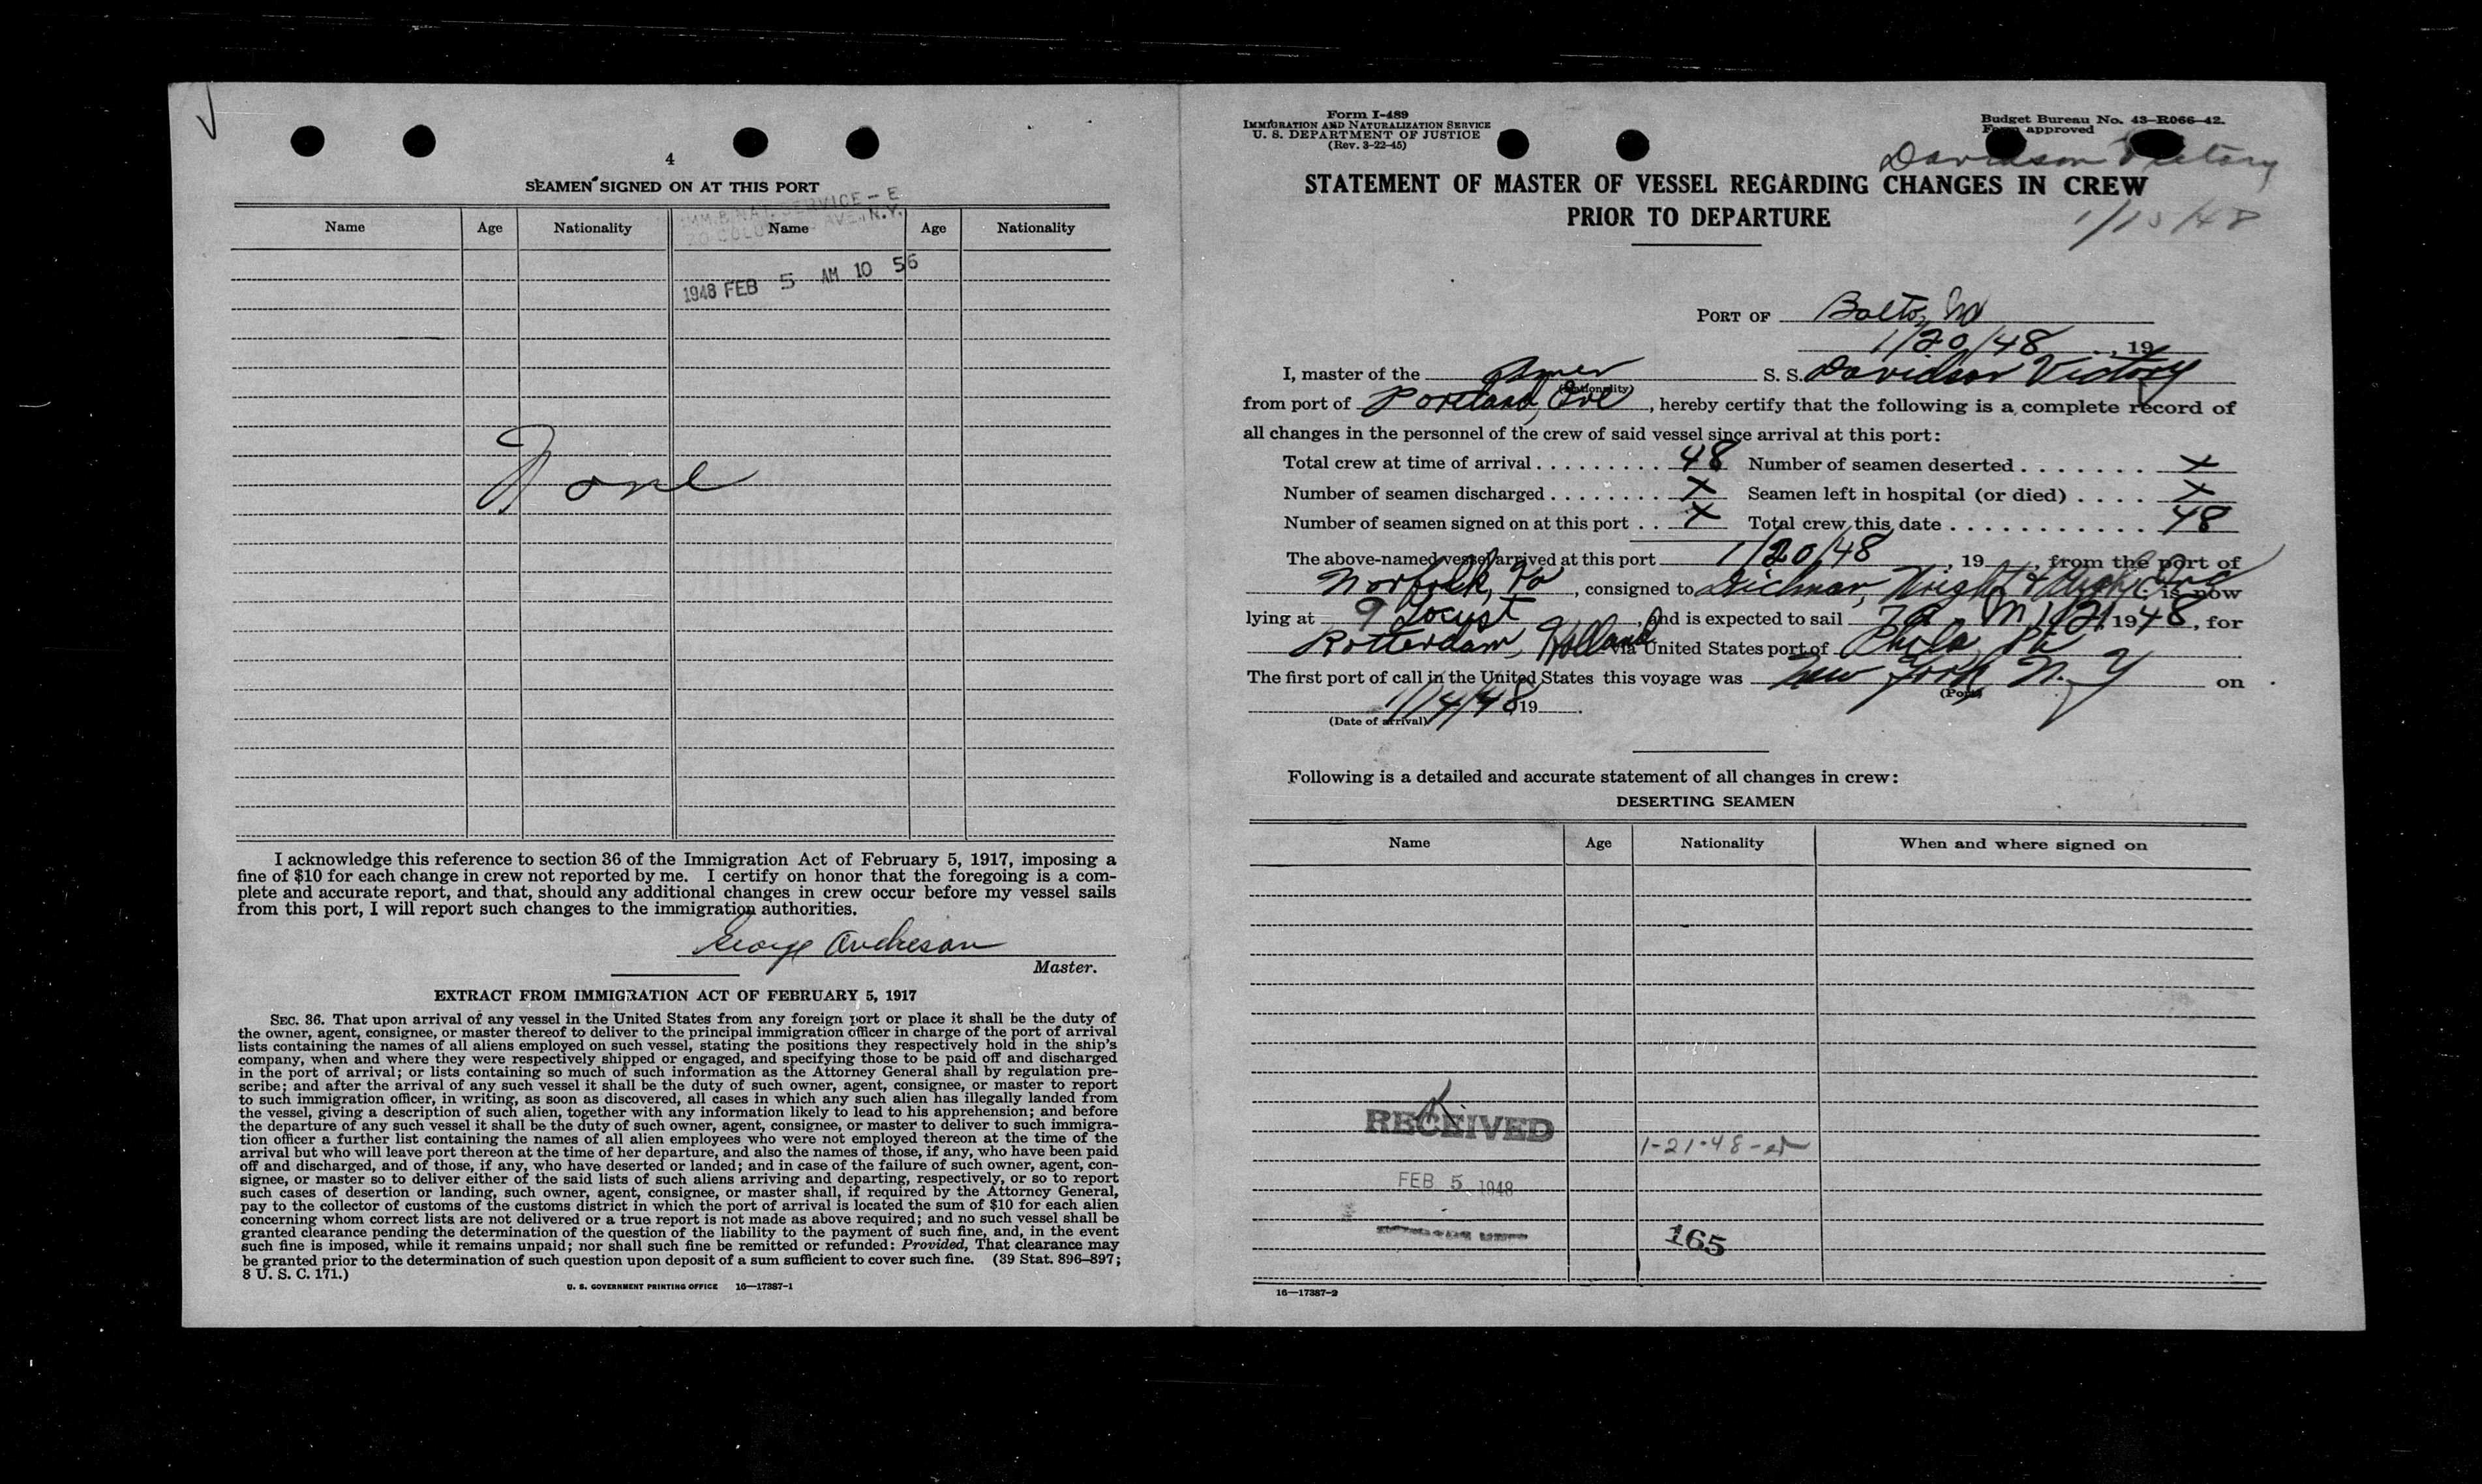 4
SEAMEN SIGNED ON AT THIS PORT
SERVICE — E
AVE., N.Y.
Name Age Nationality Name Age Nationality
1948 FEB 5 AM 10 56
None
I acknowledge this reference to section 36 of the Immigration Act of February 5, 1917, imposing a
fine of $10 for each change in crew not reported by me. I certify on honor that the foregoing is a com-
plete and accurate report, and that, should any additional changes in crew occur before my vessel sails
from this port, I will report such changes to the immigration authorities.
George
Master.
EXTRACT FROM IMMIGRATION ACT OF FEBRUARY 5, 1917
SEC. 36. That upon arrival of any vessel in the United States from any foreign port or place it shall be the duty of
the owner, agent, consignee, or master thereof to deliver to the principal immigration officer in charge of the port of arrival
lists containing the names of all aliens employed on such vessel, stating the positions they respectively hold in the ship's
company, when and where they were respectively shipped or engaged, and specifying those to be paid off and discharged
in the port of arrival; or lists containing so much of such information as the Attorney General shall by regulation pre-
scribe; and after the arrival of any such vessel it shall be the duty of such owner, agent, consignee, or master to report
to such immigration officer, in writing, as soon as discovered, all cases in which any such alien has illegally landed from
the vessel, giving a description of such alien, together with any information likely to lead to his apprehension; and before
the departure of any such vessel it shall be the duty of such owner, agent, consignee, or master to deliver to such immigra-
tion officer a further list containing the names of all alien employees who were not employed thereon at the time of the
arrival but who will leave port thereon at the time of her departure, and also the names of those, if any, who have been paid
off and discharged, and of those, if any, who have deserted or landed; and in case of the failure of such owner, agent, con-
signee, or master so to deliver either of the said lists of such aliens arriving and departing, respectively, or so to report
such cases of desertion or landing, such owner, agent, consignee, or master shall, if required by the Attorney General,
pay to the collector of customs of the customs district in which the port of arrival is located the sum of $10 for each alien
concerning whom correct lists are not delivered or a true report is not made as above required; and no such vessel shall be
granted clearance pending the determination of the question of the liability to the payment of such fine, and, in the event
such fine is imposed, while it remains unpaid; nor shall such fine be remitted or refunded: Provided, That clearance may
be granted prior to the determination of such question upon deposit of a sum sufficient to cover such fine. (39 Stat. 896–897;
8 U. S. C. 171.)
U. S. GOVERNMENT PRINTING OFFICE 16—17387-1
Form I-489
IMMIGRATION AND NATURALIZATION SERVICE
U. S. DEPARTMENT OF JUSTICE
(Rev. 3-22-45)
Budget Bureau No. 43-R066-42.
Form approved
Davidson Victory
STATEMENT OF MASTER OF VESSEL REGARDING CHANGES IN CREW
PRIOR TO DEPARTURE
PORT OF Balto, Md
1/20/48, 19
I, master of the Amer S. S. Davidson Victory
(Nationality)
from port of Portland, Ore, hereby certify that the following is a complete record of
all changes in the personnel of the crew of said vessel since arrival at this port:
Total crew at time of arrival . . . . . . . . . . 48 Number of seamen deserted . . . . . . . x
Number of seamen discharged . . . . . . . . x Seamen left in hospital (or died) . . . . x
Number of seamen signed on at this port . . x Total crew this date . . . . . . . . . . . . 48
The above-named vessel arrived at this port 1/20/48, 19, from the port of
Norfolk, Va, consigned to Dichman, Wright & Pugh, Inc is now
lying at 9 Locust, and is expected to sail 7a M 1/21 1948, for
Rotterdam, Holland via United States port of Phila, Pa
The first port of call in the United States this voyage was New York N. Y on
(Port)
1/14/48 19.
(Date of arrival)
Following is a detailed and accurate statement of all changes in crew:
DESERTING SEAMEN
Name Age Nationality When and where signed on
RECEIVED
1-21-48
FEB 5 1948
165
16—17387-2